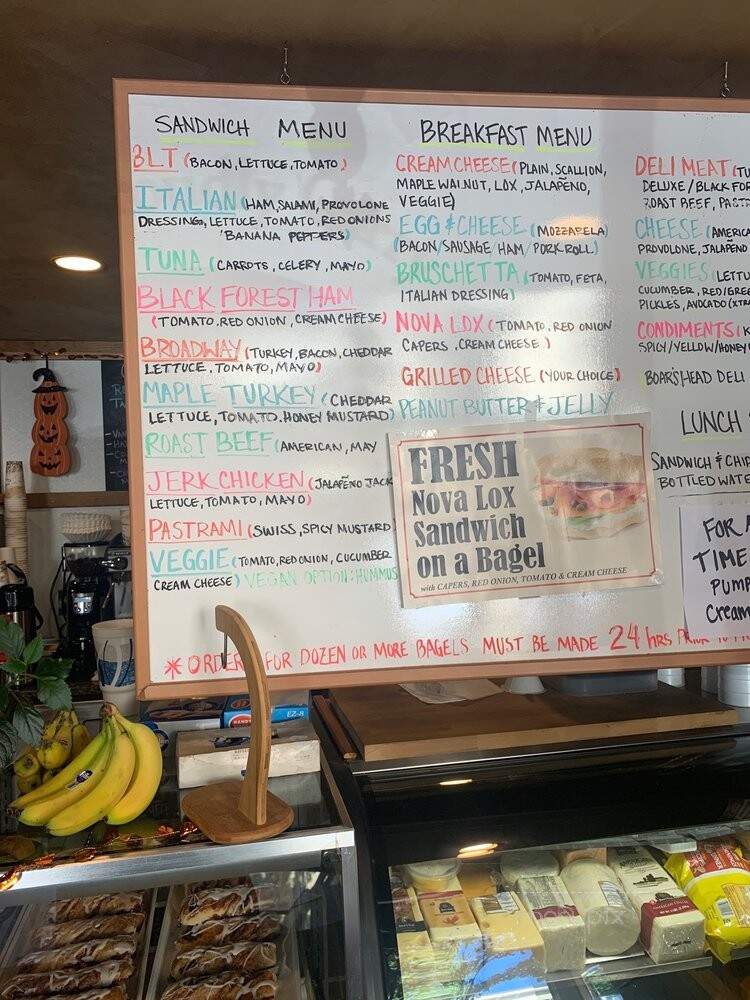 SANDWICH MENU
BLT (BACON, LETTUCE, TOMATO)
ITALIAN (HAM, SALAMI, PROVOLONE
DRESSING, LETTUCE, TOMATO, RED ONIONS
BANANA PEPPERS)
TUNA (CARROTS, CELERY, MAYO)
BLACK FOREST HAM
(TOMATO, RED ONION, CREAM CHEESE)
BROADWAY (TURKEY, BACON, CHEDDAR
LETTUCE, TOMATO, MAYO)
MAPLE TURKEY (CHEDDAR
LETTUCE, TOMATO, HONEY MUSTARD)
ROAST BEEF (AMERICAN, MAY
JERK CHICKEN (JALAPEÑO JACK
LETTUCE, TOMATO, MAYO)
PASTRAMI (SWISS, SPICY MUSTARD
VEGGIE (TOMATO, RED ONION, CUCUMBER
CREAM CHEESE) VEGAN OPTION: HUMMUS
BREAKFAST MENU
CREAM CHEESE (PLAIN, SCALLION,
MAPLE WALNUT, LOX, JALAPEÑO,
VEGGIE)
EGG & CHEESE (MOZZARELA)
(BACON/SAUSAGE/HAM/PORK ROLL)
BRUSCHETTA (TOMATO, FETA,
ITALIAN DRESSING)
NOVA LOX (TOMATO, RED ONION
CAPERS, CREAM CHEESE)
GRILLED CHEESE (YOUR CHOICE)
PEANUT BUTTER & JELLY
FRESH
Nova Lox
Sandwich
on a Bagel
with CAPERS, RED ONION, TOMATO & CREAM CHEESE
DELI MEAT (TU
DELUXE/BLACK FOR
ROAST BEEF, PASTR
CHEESE (AMERICA
PROVOLONE, JALAPEÑO
VEGGIES (LETTU
CUCUMBER, RED/GREE
PICKLES, AVOCADO (XTRA
CONDIMENTS (K
SPICY/YELLOW/HONEY
BOAR'S HEAD DELI
LUNCH
SANDWICH & CHIP
BOTTLED WATE
FOR A
TIME
PUMP
Cream
* ORDERS FOR DOZEN OR MORE BAGELS MUST BE MADE 24 hrs PRIOR TO
EZ-8